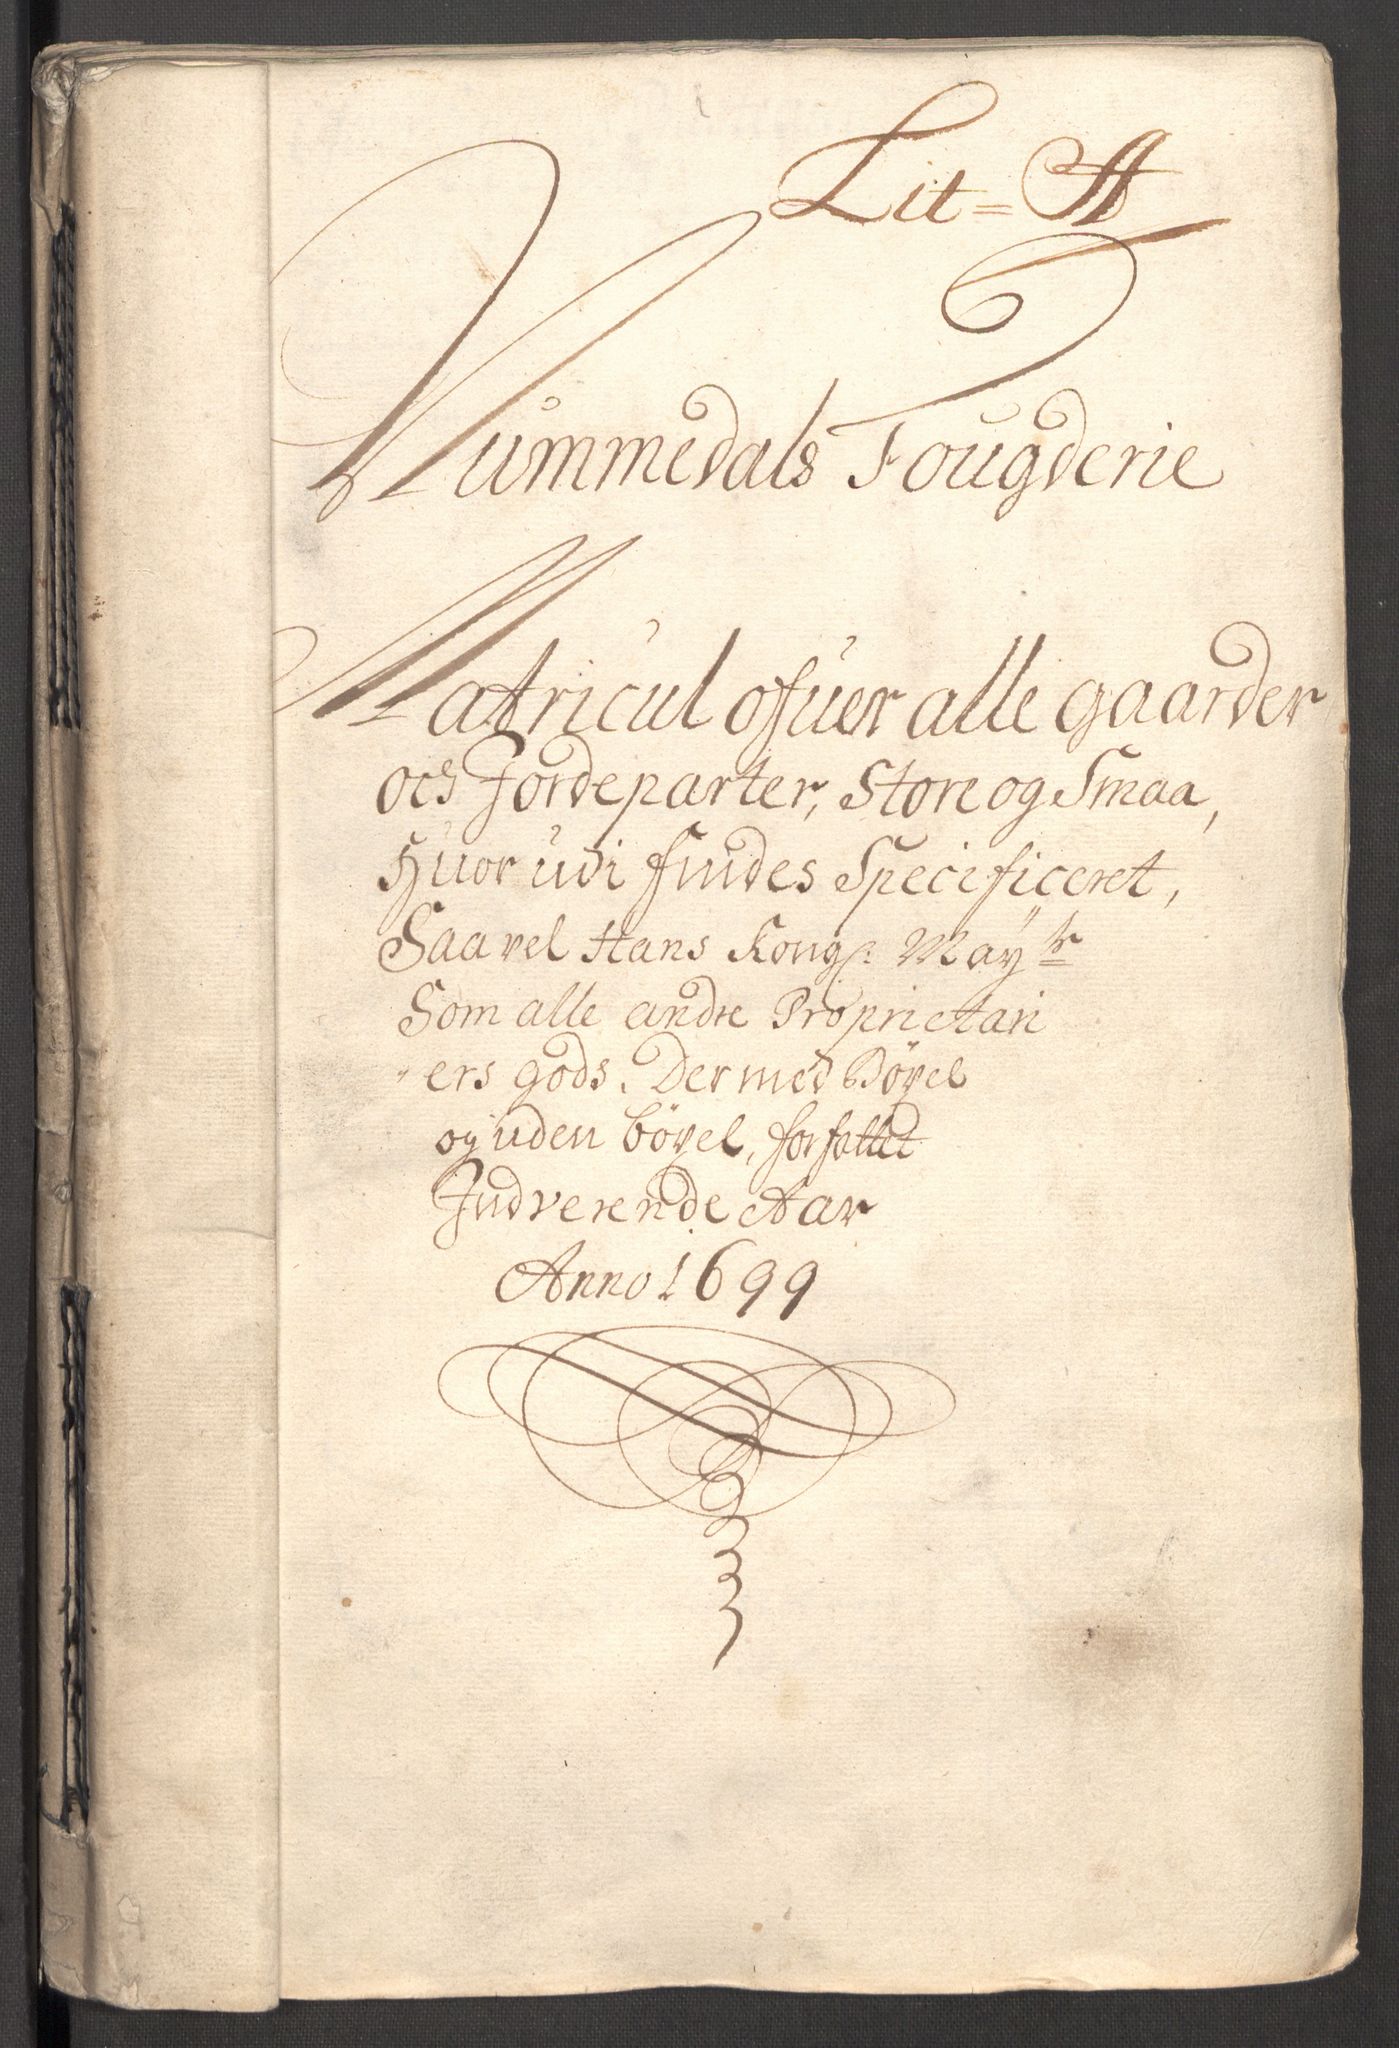 Lit = A
Nummedals Fougderie
Matricul ofuer alle gaarder
och Jordeparter, Store og Smaa,
Huor udi findes Specificeret,
Saavel Hans Kongl: Mayts
Som alle andre Proprietari
ers gods. Der med Böxel
og uden böxel, forfattet
Indverende Aar
Anno 1699